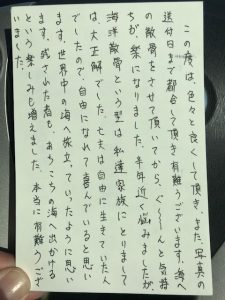 この度は、色々と良くして頂き、また、写真の
送付日まで都合して頂き有難うございます。海へ
の散骨をさせて頂いてから、ぐーんと気持
ちが楽になりました。半年近く悩みましたが、
海洋散骨という型は私達家族にとりまして
は、大正解でした。亡夫は自由に生きていた人
でしたので、自由になれて喜んでいると思い
ます。世界中の海へ旅立っていったように思い
ます。残された者も、あちこちの海へ出かける
という楽しみも増えました。本当に有難うござ
いました。